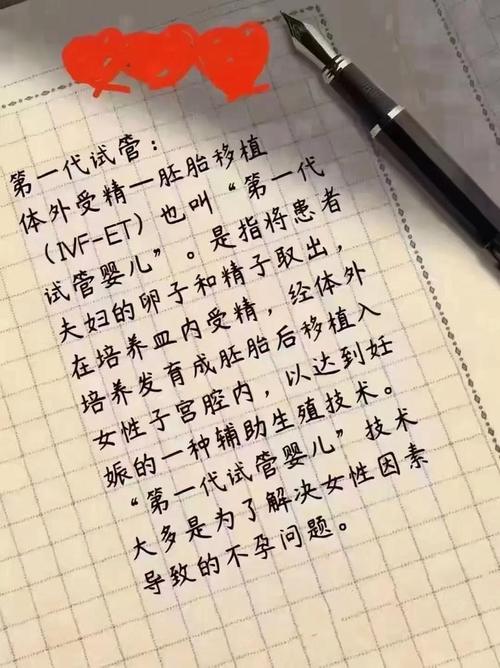 第一代试管：
体外受精一胚胎移植
（IVF-ET）也叫“第一代
试管婴儿”。是指将患者
夫妇的卵子和精子取出，
在培养皿内受精，经体外
培养发育成胚胎后移植入
女性子宫腔内，以达到妊
娠的一种辅助生殖技术。
“第一代试管婴儿”技术
大多是为了解决女性因素
导致的不孕问题。